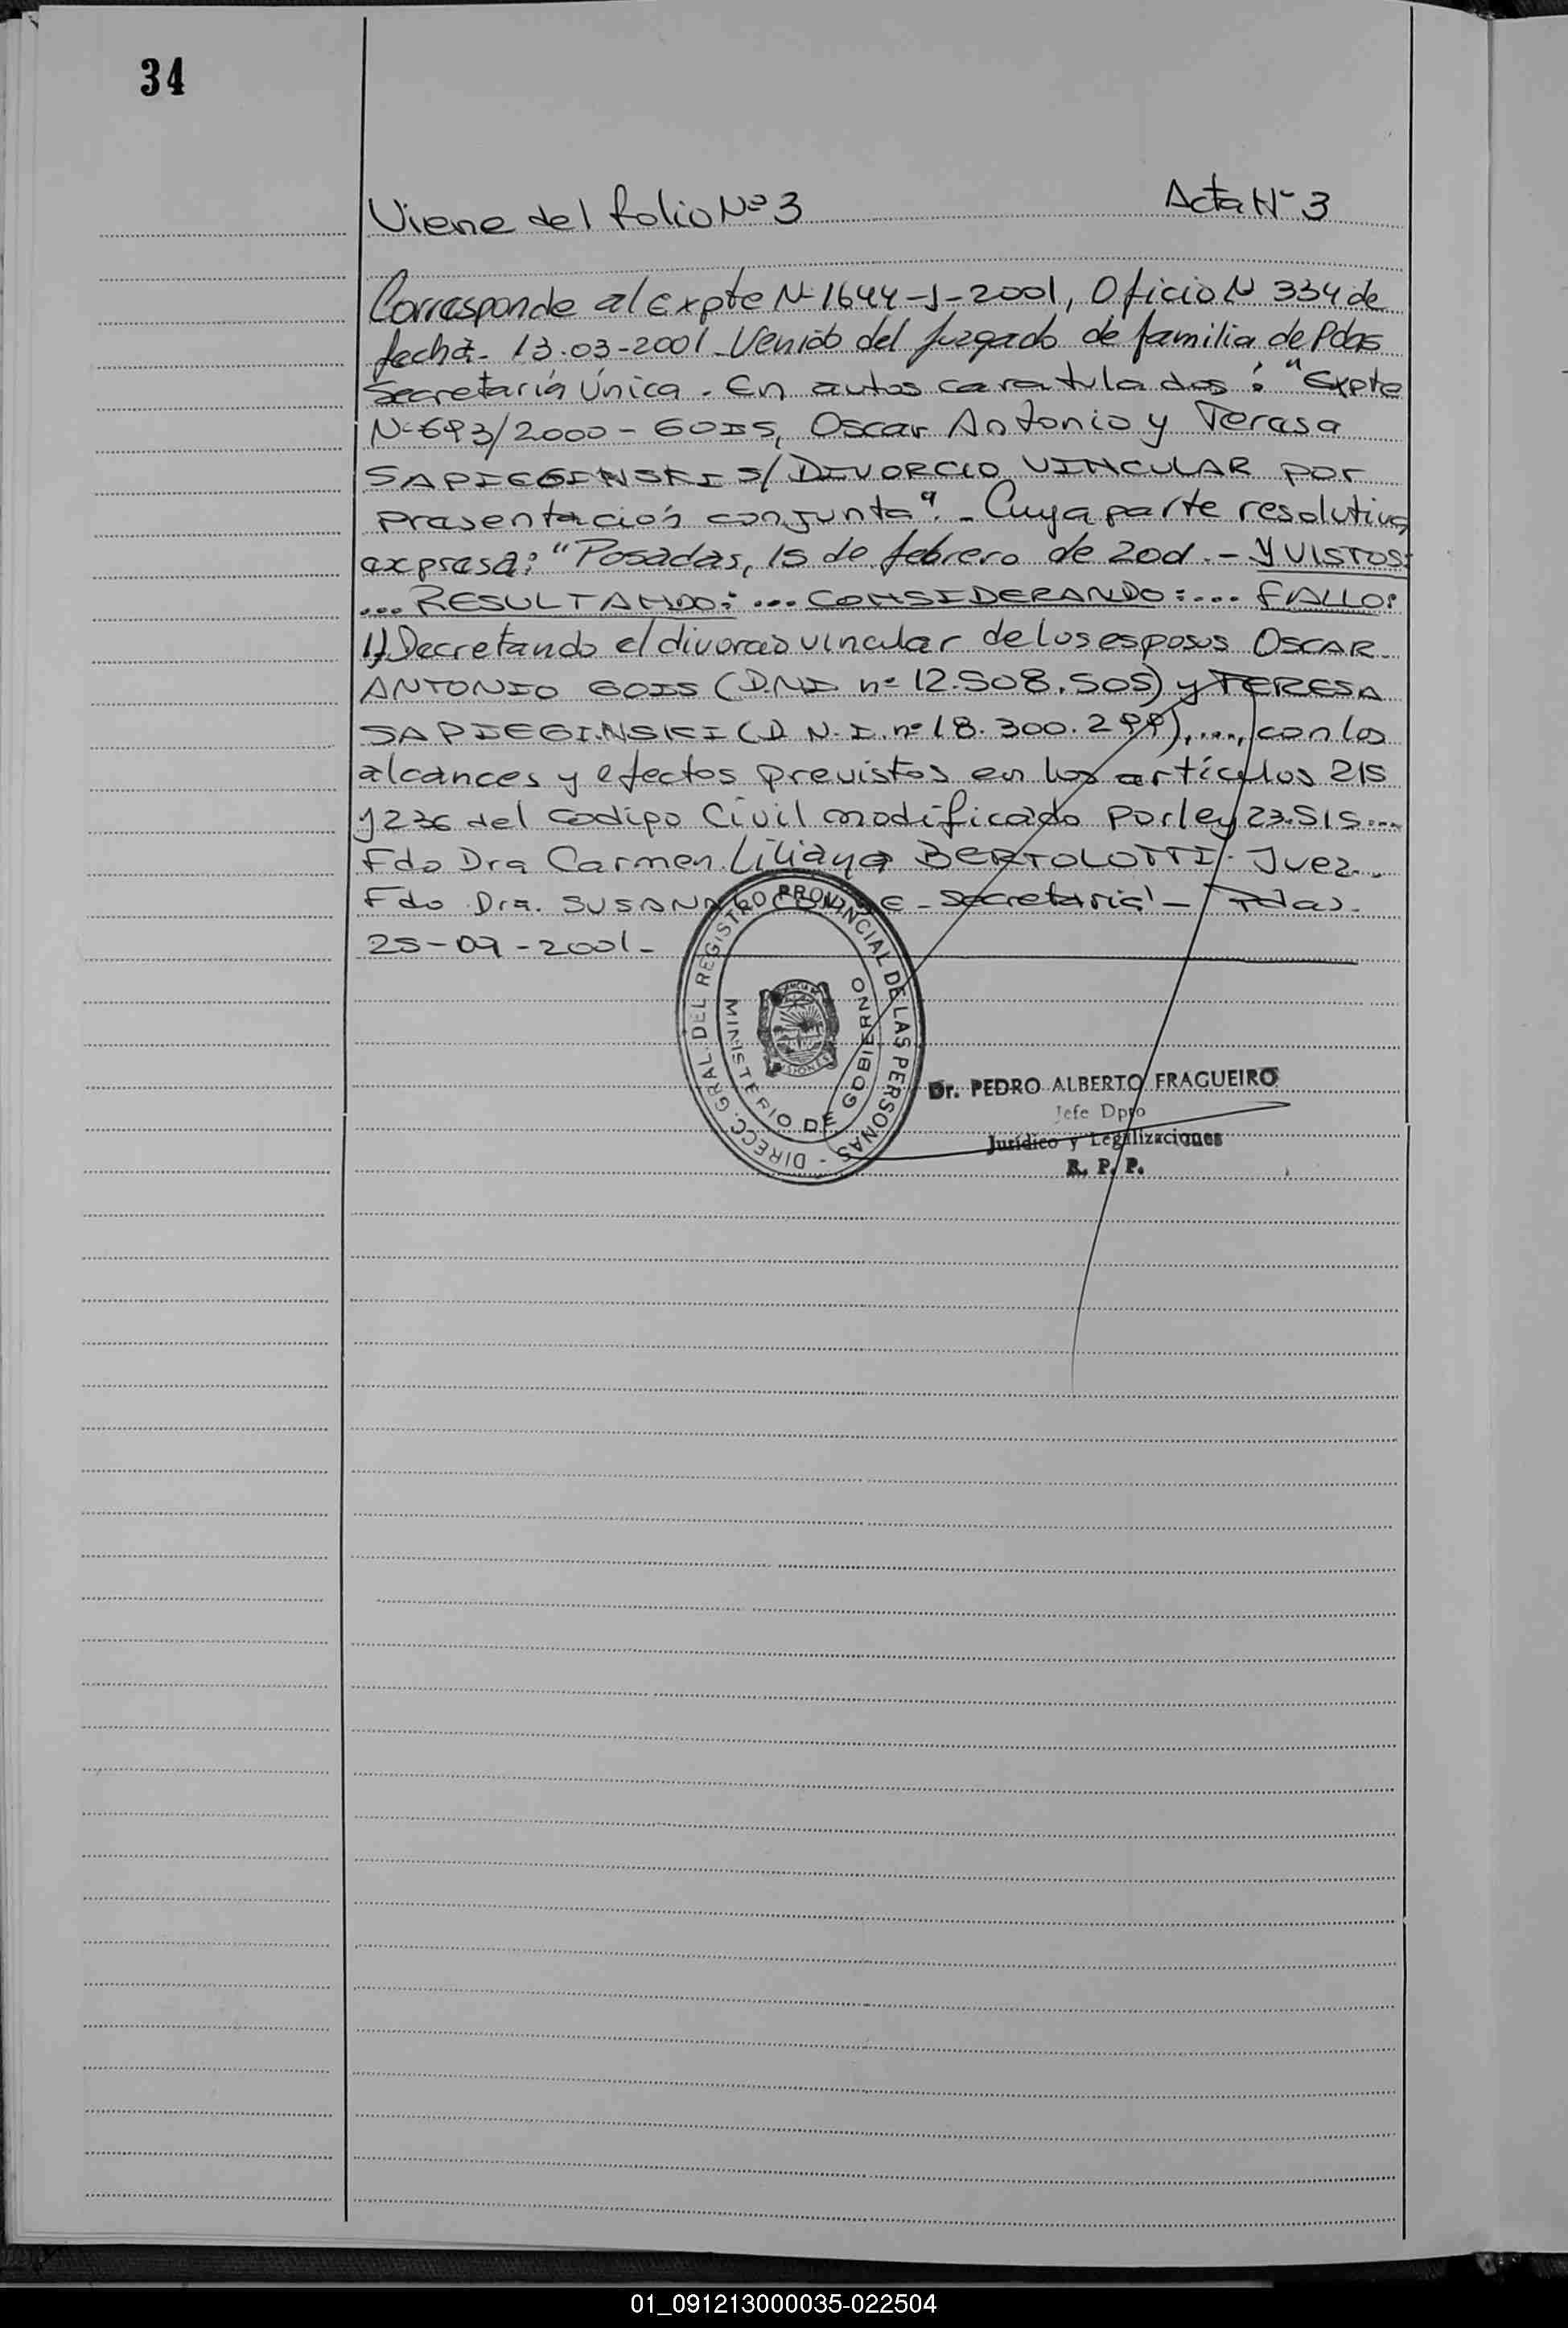 34
Viene del folio Nº 3 Acta Nº 3
Corresponde al Expte Nº 1644-J-2001, Oficio N 334 de
fecha. 13-03-2001. Venido del Juzgado de familia de Pdas
Secretaría Única. En autos caratulados: "Expte
Nº 693/2000 - GOIS, Oscar Antonio y Teresa
SAPIEGINSKI S/ DIVORCIO VINCULAR por
presentación conjunta". - Cuya parte resolutiva
expresa: "Posadas, 15 de febrero de 2001. - Y VISTOS:
... RESULTANDO: ... CONSIDERANDO: ... FALLO:
1) Decretando el divorcio vincular de los esposos OSCAR
ANTONIO GOIS (D.N.I. nº 12.508.505) y TERESA
SAPIEGINSKI (D.N.I. nº 18.300.299), ..., con los
alcances y efectos previstos en los artículos 215
y 236 del Codigo Civil modificado por ley 23.515....
Fdo Dra Carmen Liliana BERTOLOTTI. Juez..
Fdo Dra. SUSANA - Secretaria - Pdas.
25-09-2001-
DIRECC. GRAL. DEL REGISTRO PROVINCIAL DE LAS PERSONAS -
MINISTERIO DE GOBIERNO
Dr. PEDRO ALBERTO FRAGUEIRO
Jefe Dpto
Jurídico y Legalizaciones
R. P. P.
01_091213000035-022504